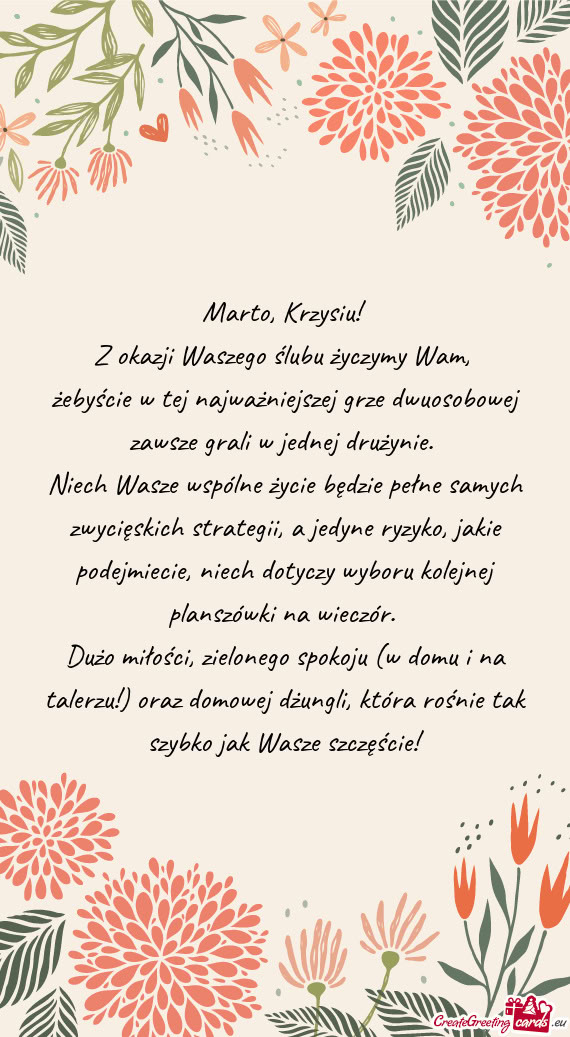 Marto, Krzysiu!
Z okazji Waszego ślubu życzymy Wam,
żebyście w tej najważniejszej grze dwuosobowej
zawsze grali w jednej drużynie.
Niech Wasze wspólne życie będzie pełne samych
zwycięskich strategii, a jedyne ryzyko, jakie
podejmiecie, niech dotyczy wyboru kolejnej
planszówki na wieczór.
Dużo miłości, zielonego spokoju (w domu i na
talerzu!) oraz domowej dżungli, która rośnie tak
szybko jak Wasze szczęście!
CreateGreeting cards .eu